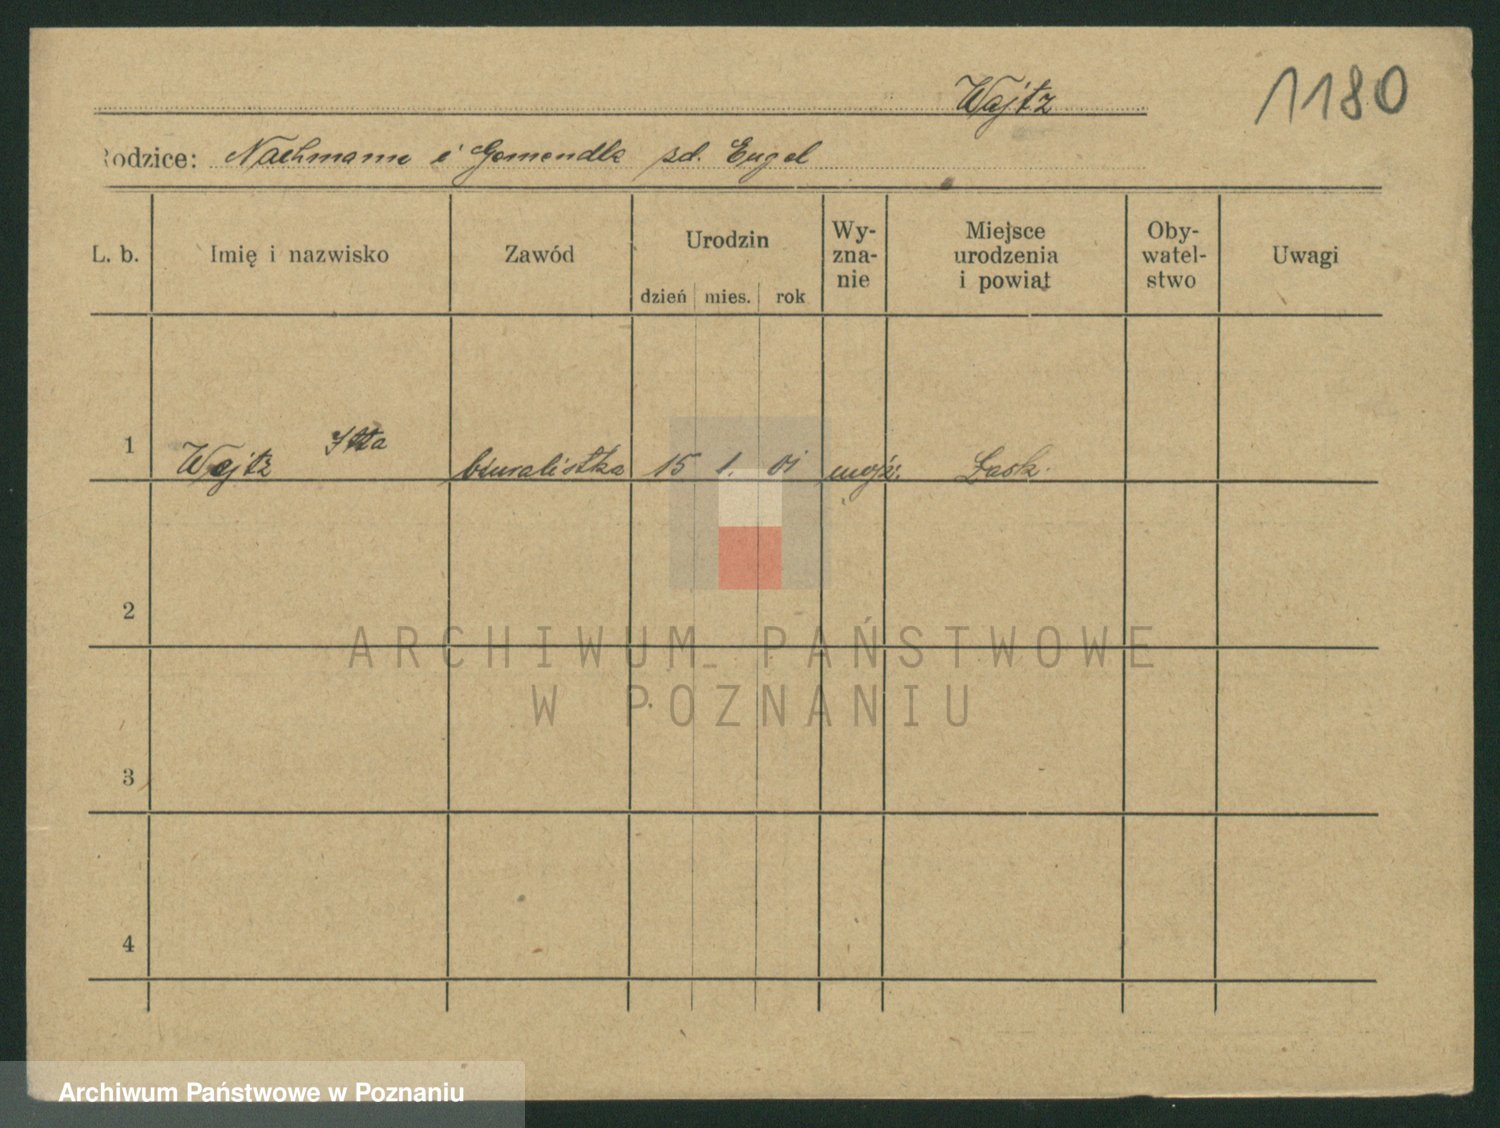 Wajtz
1180
Rodzice: Nachmann i Gomendla zd. Engel
L. b. Imię i nazwisko Zawód Urodzin dzień mies. rok Wy-zna-nie Miejsce urodzenia i powiat Oby-watel-stwo Uwagi
1 Wajtz Itta biuralistka 15 1. 01 mojż. Łask.
2
ARCHIWUM PAŃSTWOWE
W POZNANIU
3
4
Archiwum Państwowe w Poznaniu